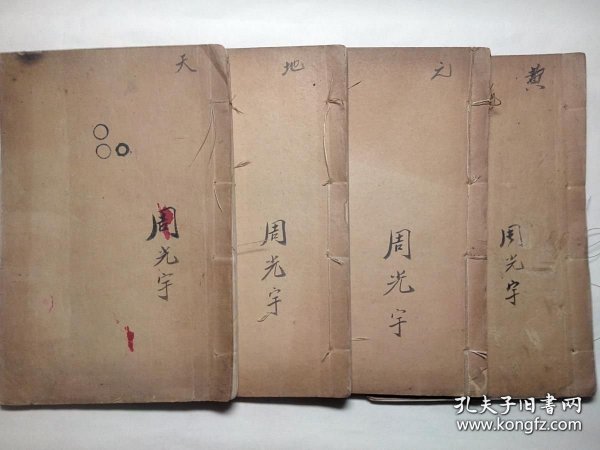 天
周光宇
地
周光宇
元
周光宇
黄
周光宇
孔夫子旧书网
www.kongfz.com